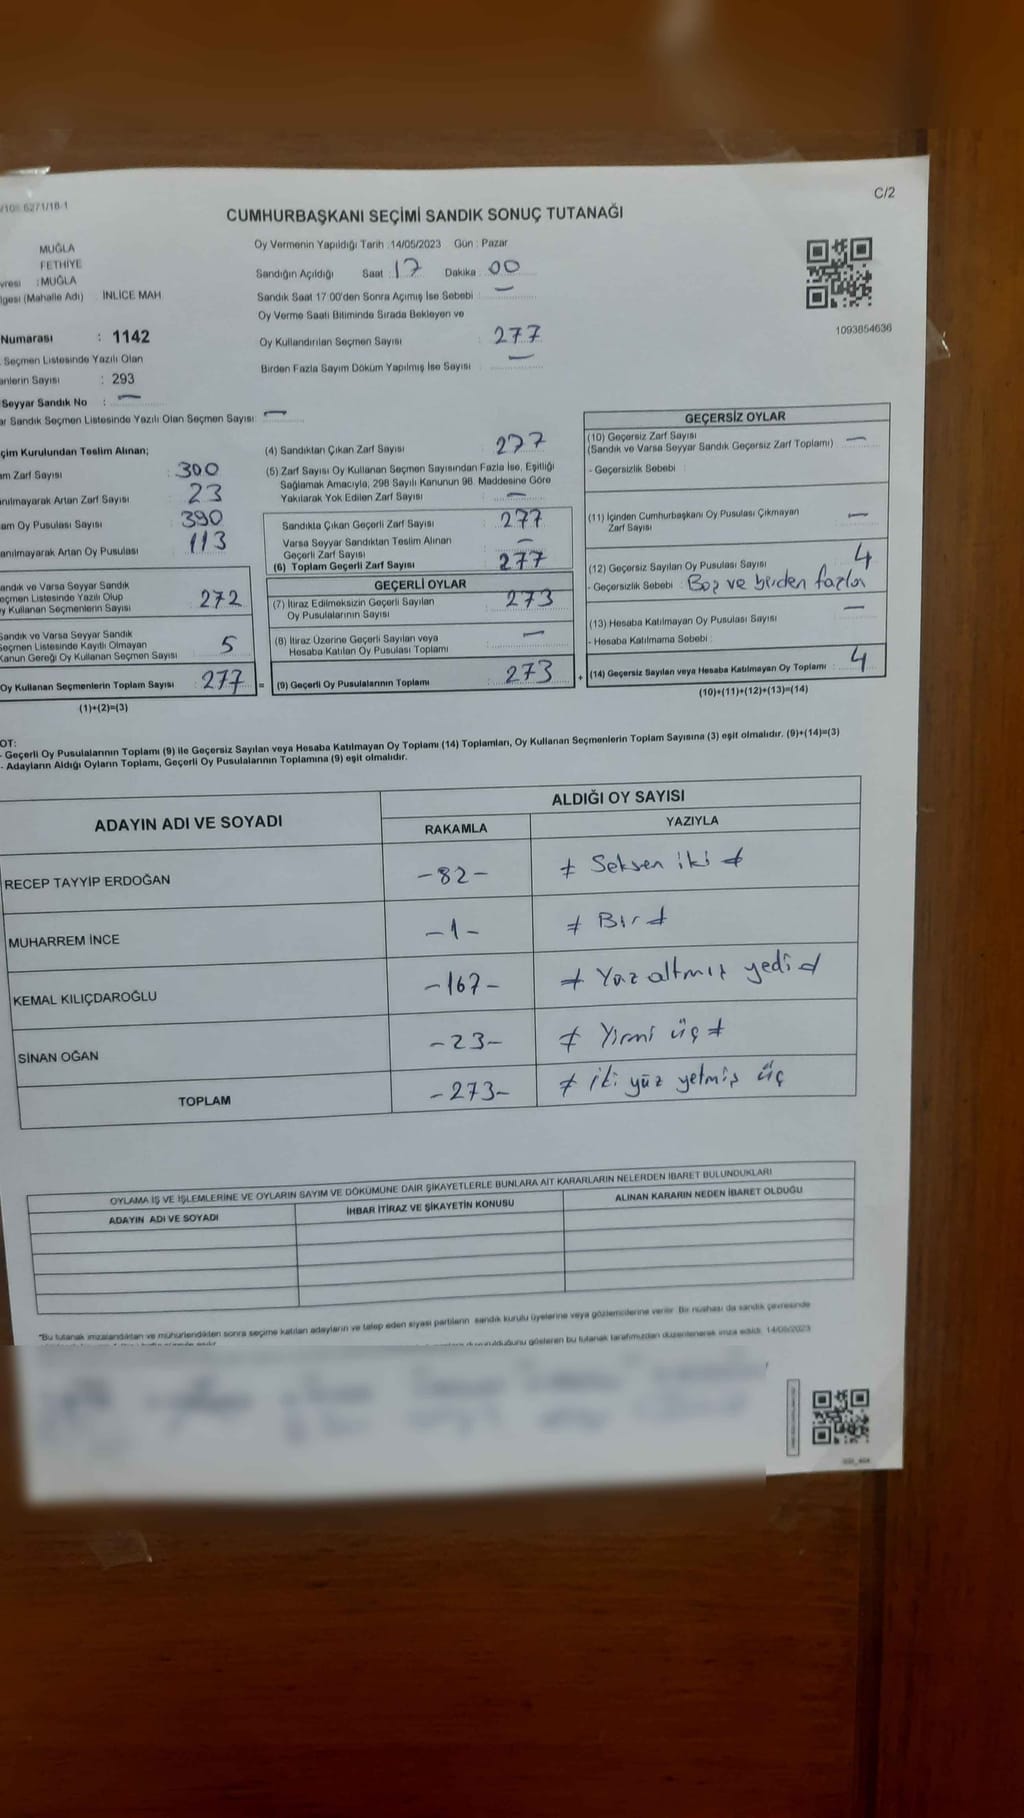 C/2
CUMHURBAŞKANI SEÇİMİ SANDIK SONUÇ TUTANAĞI
MUĞLA
FETHİYE
: MUĞLA
(Mahalle Adı) İNLİCE MAH.
Numarası : 1142
Seçmen Listesinde Yazılı Olan
Sayısı : 293
Seyyar Sandık No : —
Sandık Seçmen Listesinde Yazılı Olan Seçmen Sayısı: —
Oy Vermenin Yapıldığı Tarih : 14/05/2023 Gün : Pazar
Sandığın Açıldığı Saat : 17 Dakika : 00
Sandık Saat 17:00'den Sonra Açımış İse Sebebi : —
Oy Verme Saati Bitiminde Sırada Bekleyen ve
Oy Kullandırılan Seçmen Sayısı : 277
Birden Fazla Sayım Döküm Yapılmış İse Sayısı : —
1093854636
Kurulundan Teslim Alınan;
Zarf Sayısı : 300
Artan Zarf Sayısı : 23
Oy Pusulası Sayısı : 390
Artan Oy Pusulası : 113
ve Varsa Seyyar Sandık
Listesinde Yazılı Olup
Kullanan Seçmenlerin Sayısı : 272
Sandık ve Varsa Seyyar Sandık
Seçmen Listesinde Kayıtlı Olmayan
Kanun Gereği Oy Kullanan Seçmen Sayısı : 5
Oy Kullanan Seçmenlerin Toplam Sayısı : 277
(1)+(2)=(3)
(4) Sandıktan Çıkan Zarf Sayısı : 277
(5) Zarf Sayısı Oy Kullanan Seçmen Sayısından Fazla İse, Eşitliği
Sağlamak Amacıyla, 298 Sayılı Kanunun 98. Maddesine Göre
Yakılarak Yok Edilen Zarf Sayısı : —
Sandıkta Çıkan Geçerli Zarf Sayısı : 277
Varsa Seyyar Sandıktan Teslim Alınan
Geçerli Zarf Sayısı : —
(6) Toplam Geçerli Zarf Sayısı : 277
GEÇERLİ OYLAR
(7) İtiraz Edilmeksizin Geçerli Sayılan
Oy Pusulalarının Sayısı : 273
(8) İtiraz Üzerine Geçerli Sayılan veya
Hesaba Katılan Oy Pusulası Toplamı : —
= (9) Geçerli Oy Pusulalarının Toplamı : 273
GEÇERSİZ OYLAR
(10) Geçersiz Zarf Sayısı
(Sandık ve Varsa Seyyar Sandık Geçersiz Zarf Toplamı) : —
- Geçersizlik Sebebi :
(11) İçinden Cumhurbaşkanı Oy Pusulası Çıkmayan
Zarf Sayısı : —
(12) Geçersiz Sayılan Oy Pusulası Sayısı : 4
- Geçersizlik Sebebi : Boş ve birden fazla
(13) Hesaba Katılmayan Oy Pusulası Sayısı : —
- Hesaba Katılmama Sebebi :
+ (14) Geçersiz Sayılan veya Hesaba Katılmayan Oy Toplamı : 4
(10)+(11)+(12)+(13)=(14)
OT:
- Geçerli Oy Pusulalarının Toplamı (9) ile Geçersiz Sayılan veya Hesaba Katılmayan Oy Toplamı (14) Toplamları, Oy Kullanan Seçmenlerin Toplam Sayısına (3) eşit olmalıdır. (9)+(14)=(3)
- Adayların Aldığı Oyların Toplamı, Geçerli Oy Pusulalarının Toplamına (9) eşit olmalıdır.
ADAYIN ADI VE SOYADI
ALDIĞI OY SAYISI
RAKAMLA YAZIYLA
RECEP TAYYİP ERDOĞAN -82- ≠ Seksen iki ≠
MUHARREM İNCE -1- ≠ Bir ≠
KEMAL KILIÇDAROĞLU -167- ≠ Yüz altmış yedi ≠
SİNAN OĞAN -23- ≠ Yirmi üç ≠
TOPLAM -273- ≠ iki yüz yetmiş üç
OYLAMA İŞ VE İŞLEMLERİNE VE OYLARIN SAYIM VE DÖKÜMÜNE DAİR ŞİKAYETLERLE BUNLARA AİT KARARLARIN NELERDEN İBARET BULUNDUKLARI
ADAYIN ADI VE SOYADI İHBAR İTİRAZ VE ŞİKAYETİN KONUSU ALINAN KARARIN NEDEN İBARET OLDUĞU
"Bu tutanak imzalandıktan ve mühürlendikten sonra seçime katılan adayların ve talep eden siyasi partilerin sandık kurulu üyelerine veya gözlemcilerine verilir. Bir nüshası da sandık çevresinde
gösteren bu tutanak tarafımızdan düzenlenerek imza edildi. 14/05/2023